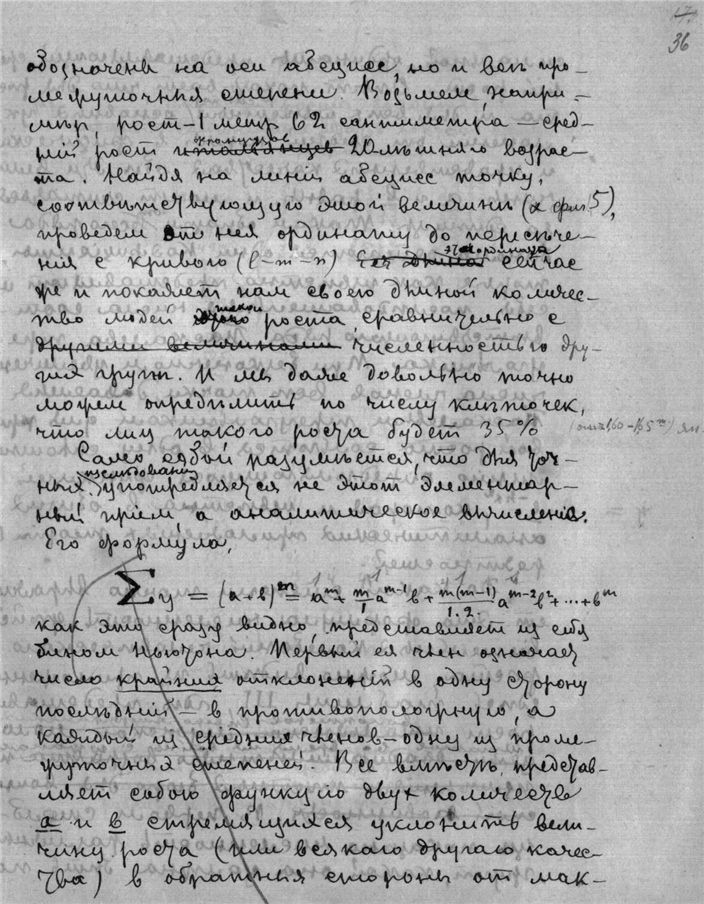 17.
36
обозначены на оси абсцисс, но и всѣ про-
межуточныя степени. Возьмем, напри-
мѣр, рост – 1 метр 62 сантиметра – сред-
ній рост итальянцев 20 лѣтняго возрас-
та. Найдя на линіи абсцисс точку,
соотвѣтствующую этой величинѣ (x фиг. 5),
проведем от нея ординату до пересѣче-
нія с кривою (l-m-n) эта ордината Ея длина сейчас
же и покажет нам своею длиной количес-
тво людей такого роста, сравнительно с
другими величинами численностью дру-
гих групп. И мы даже довольно точно
можем опредѣлить по числу клѣточек,
что лиц такого роста будет 35% (от 1,60–1,65 m)
Само собой разумѣется, что для точ-
ных изслѣдованій употребляется не этот элементар-
ный пріем, а аналитическое вычисленіе.
Его формула,
Σy = (a+b)^m = a^m + m/1 a^{m-1} b + m(m-1)/1.2. a^{m-2} b^2 + ... + b^m
как это сразу видно, представляет из себя
бином Ньютона. Первый ея член означает
число крайних отклоненій в одну сторону
послѣдній – в противоположную, а
каждый из средних членов – одну из проме-
жуточных степеней. Все вмѣстѣ представ-
ляет собою функцію двух количеств
a и b стремящихся уклонить вели-
чину роста (или всякаго другого качес-
тва) в обратныя стороны от мак-